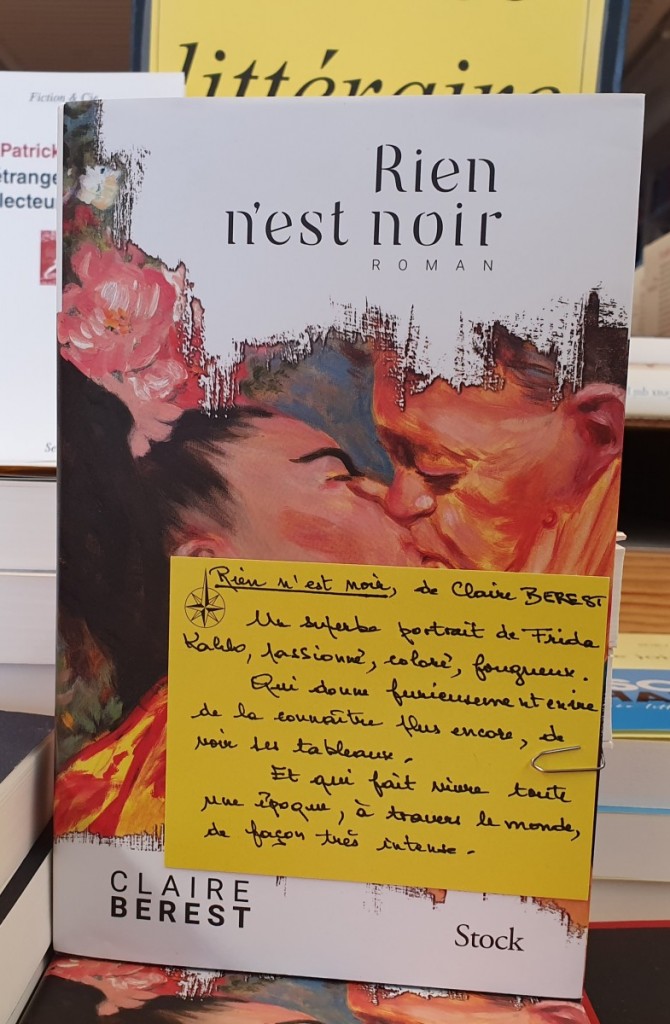 littéraire
Fiction & Cie
Patrick
étrange
lecteur
Rien
n'est noir
ROMAN
Rien n'est noir, de Claire BEREST
Un superbe portrait de Frida
Kahlo, passionné, coloré, fougueux.
Qui donne furieusement envie
de la connaître plus encore, de
voir ses tableaux.
Et qui fait vivre toute
une époque, à travers le monde,
de façon très intense.
CLAIRE
BEREST
Stock